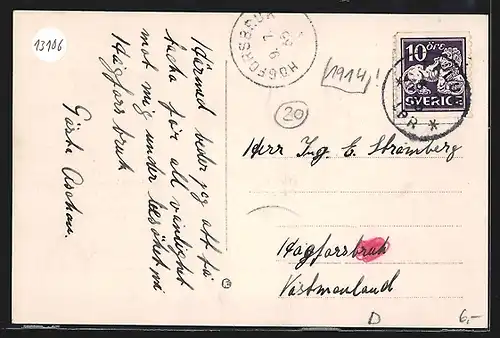 13106
Härmed beder jag att få
tacka för all vänlighet
mot mig under besöket vid
Högfors bruk
Gösta Aschan.
HÖGFORSBRUK
[1914]!
20
10 ÖRE
SVERIGE
Herr Ing. E. Strömberg
Högforsbruk
Västmanland
D
6,-